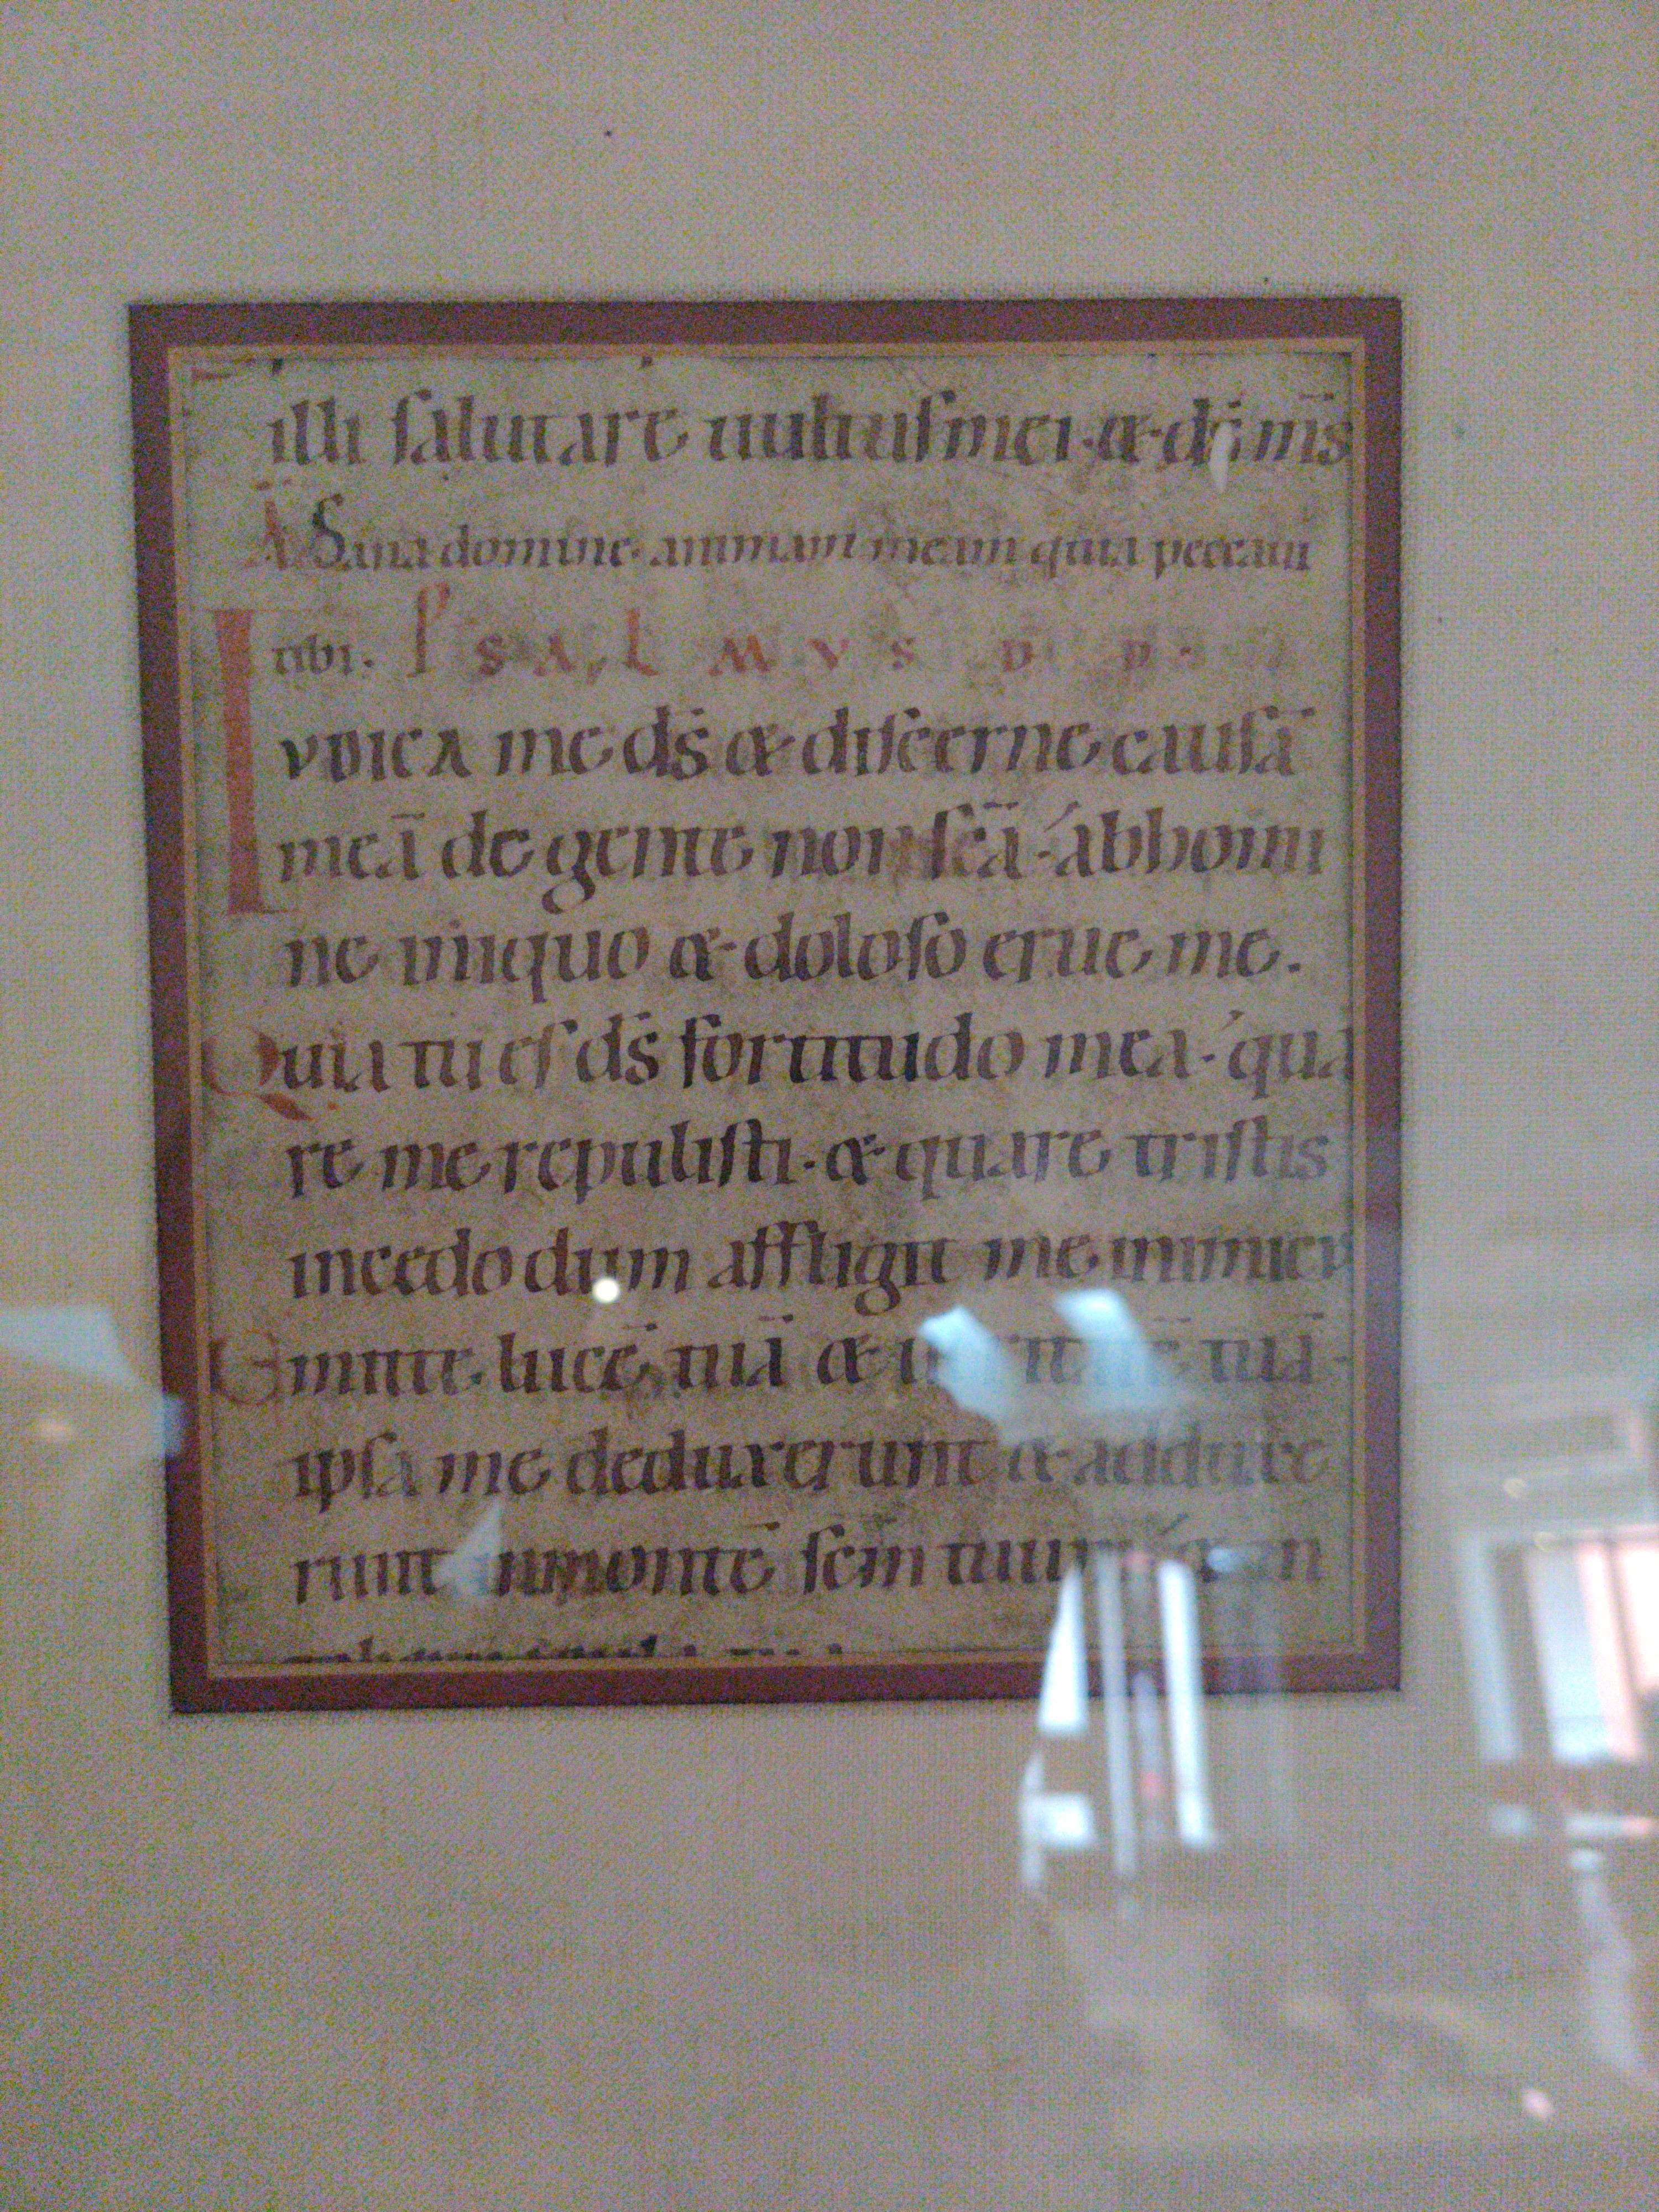 illi salutare uultus mei · & · ds̄ m̄s
A Sana domine · animam meam quia peccaui
tibi. PSALMVS D D ·
IVDICA me ds̄ & discerne causā
meā de gente non scā · ab homi
ne iniquo & doloso erue me .
Quia tu es ds̄ fortitudo mea · qua
re me repulisti · & quare tristis
incedo dum affligit me inimicus
Emitte lucē tuā & tuā ·
ipsa me deduxerunt & adduxe
runt in montē scm̄ tuum & in